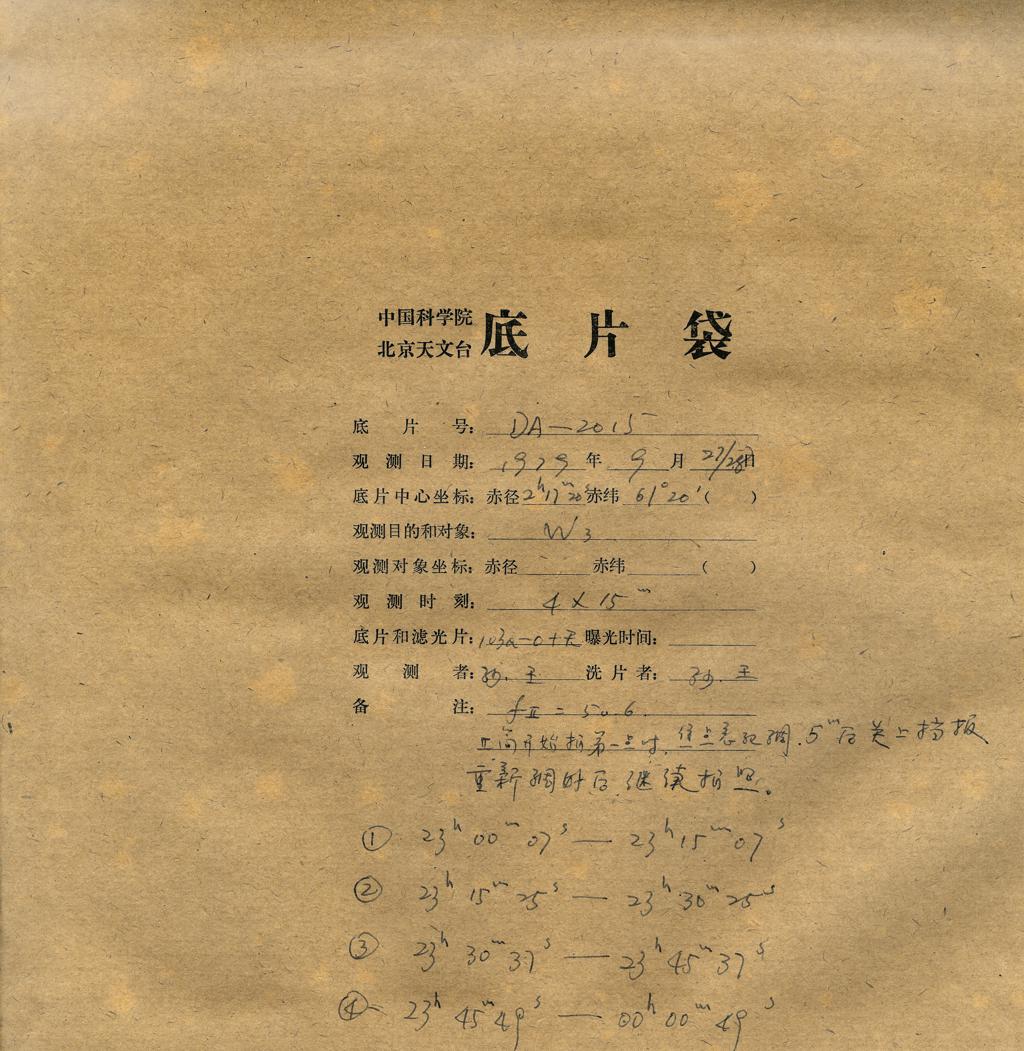 中国科学院
北京天文台 底片袋
底片号: DA—2015
观测日期: 1979年9月27/28日
底片中心坐标: 赤径2ʰ17ᵐ20ˢ赤纬61°20′( )
观测目的和对象: W3
观测对象坐标: 赤径 赤纬 ( )
观测时刻: 4×15ᵐ
底片和滤光片: 103a-0+无 曝光时间:
观测者: 孙.王 洗片者: 孙.王
备注: fⅡ=50.6.
开始拍第一点时, 焦点忘记调. 5ᵐ后关上挡板
重新调时后, 继续拍照。
① 23ʰ00ᵐ07ˢ—23ʰ15ᵐ07ˢ
② 23ʰ15ᵐ25ˢ—23ʰ30ᵐ25ˢ
③ 23ʰ30ᵐ37ˢ—23ʰ45ᵐ37ˢ
④ 23ʰ45ᵐ49ˢ—00ʰ00ᵐ49ˢ